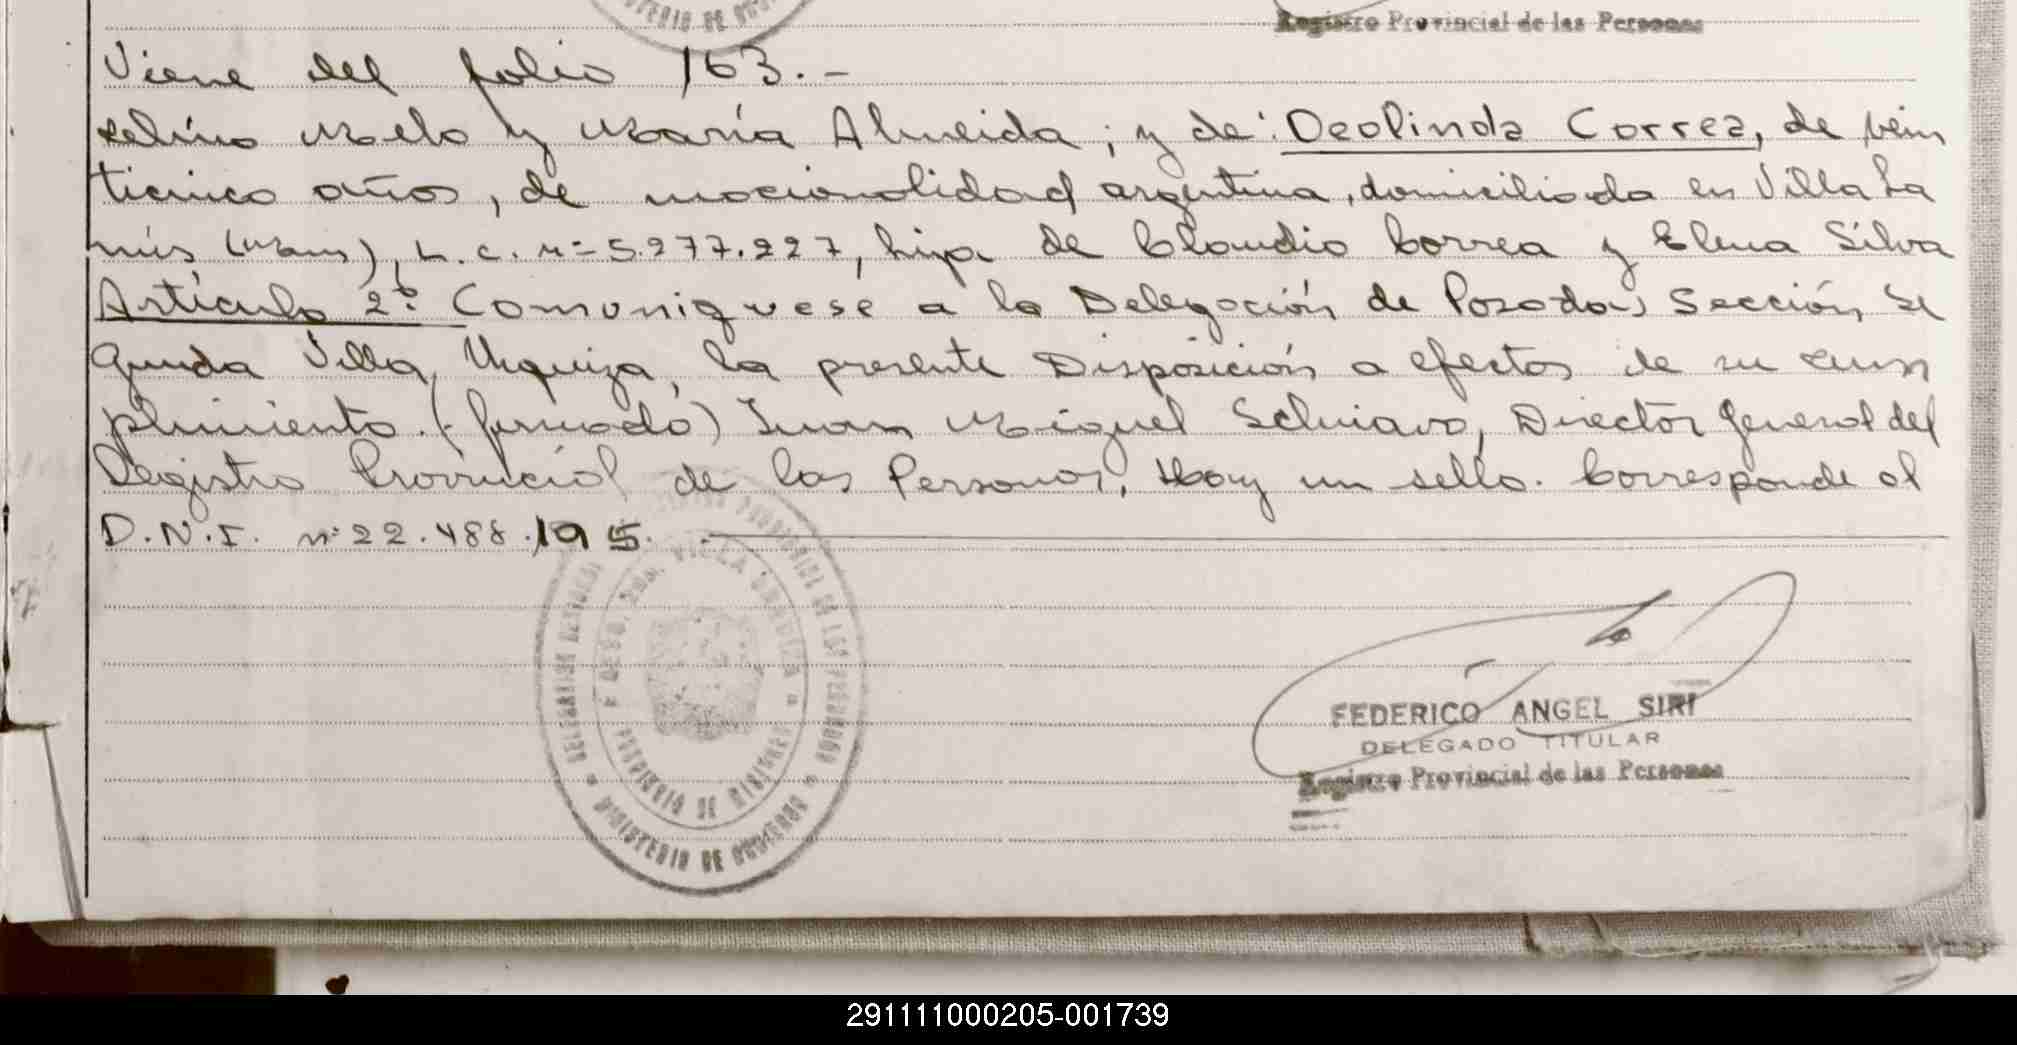 MINISTERIO DE
Registro Provincial de las Personas
Viene del folio 163.-
celino Melo y María Almeida; y de: Deolinda Correa, de vein
ticinco años, de nacionalidad argentina, domiciliada en Villa La
nús (Mnes), L.C. nº 5.277.227, hija de Claudio Correa y Elena Silva
Artículo 2º: Comuníquese a la Delegación de Posadas Sección Se
gunda Villa Urquiza, la presente Disposición a efectos de su cum
plimiento. (firmado) Juan Miguel Schiavo, Director General del
Registro Provincial de las Personas. Hay un sello. Corresponde al
D.N.I. nº 22.488.195.
PROVINCIAL DE LAS PERSONAS
VILLA URQUIZA
PROVINCIA DE MISIONES
MINISTERIO DE GOBIERNO
FEDERICO ANGEL SIRI
DELEGADO TITULAR
Registro Provincial de las Personas
291111000205-001739